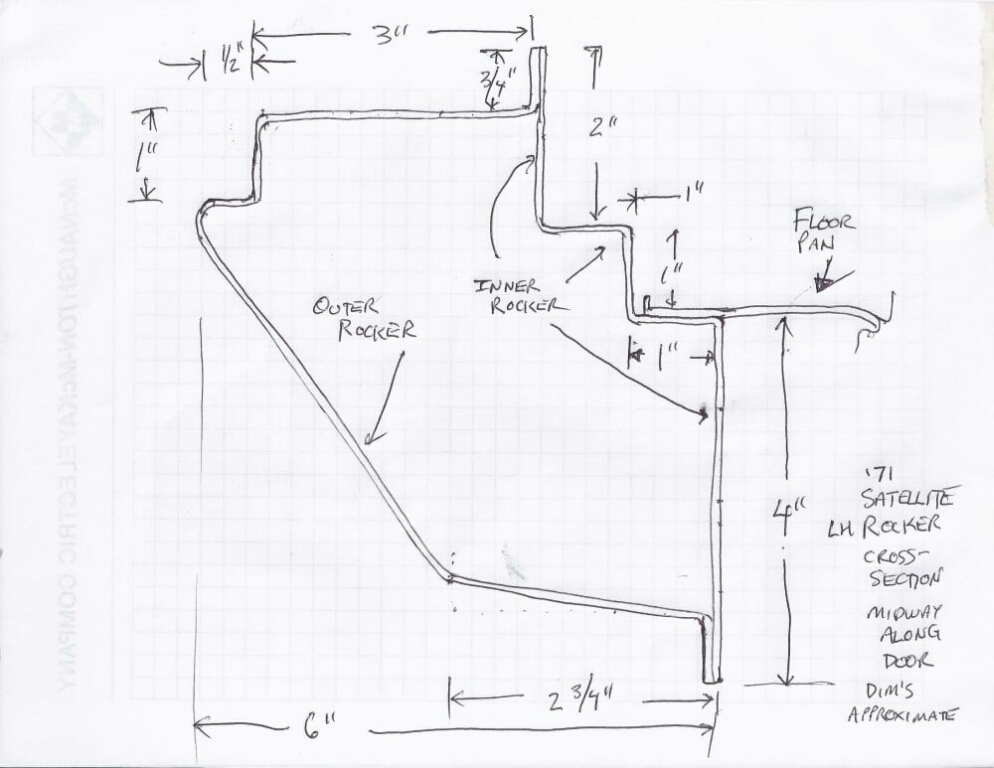 3"
1/2"
3/4"
2"
1"
1"
FLOOR
PAN
1"
INNER
ROCKER
OUTER
ROCKER
1"
4"
'71
SATELLITE
LH ROCKER
CROSS-
SECTION
MIDWAY
ALONG
DOOR
DIM'S
APPROXIMATE
2 3/4"
6"
MCNAUGHTON-MCKAY ELECTRIC COMPANY